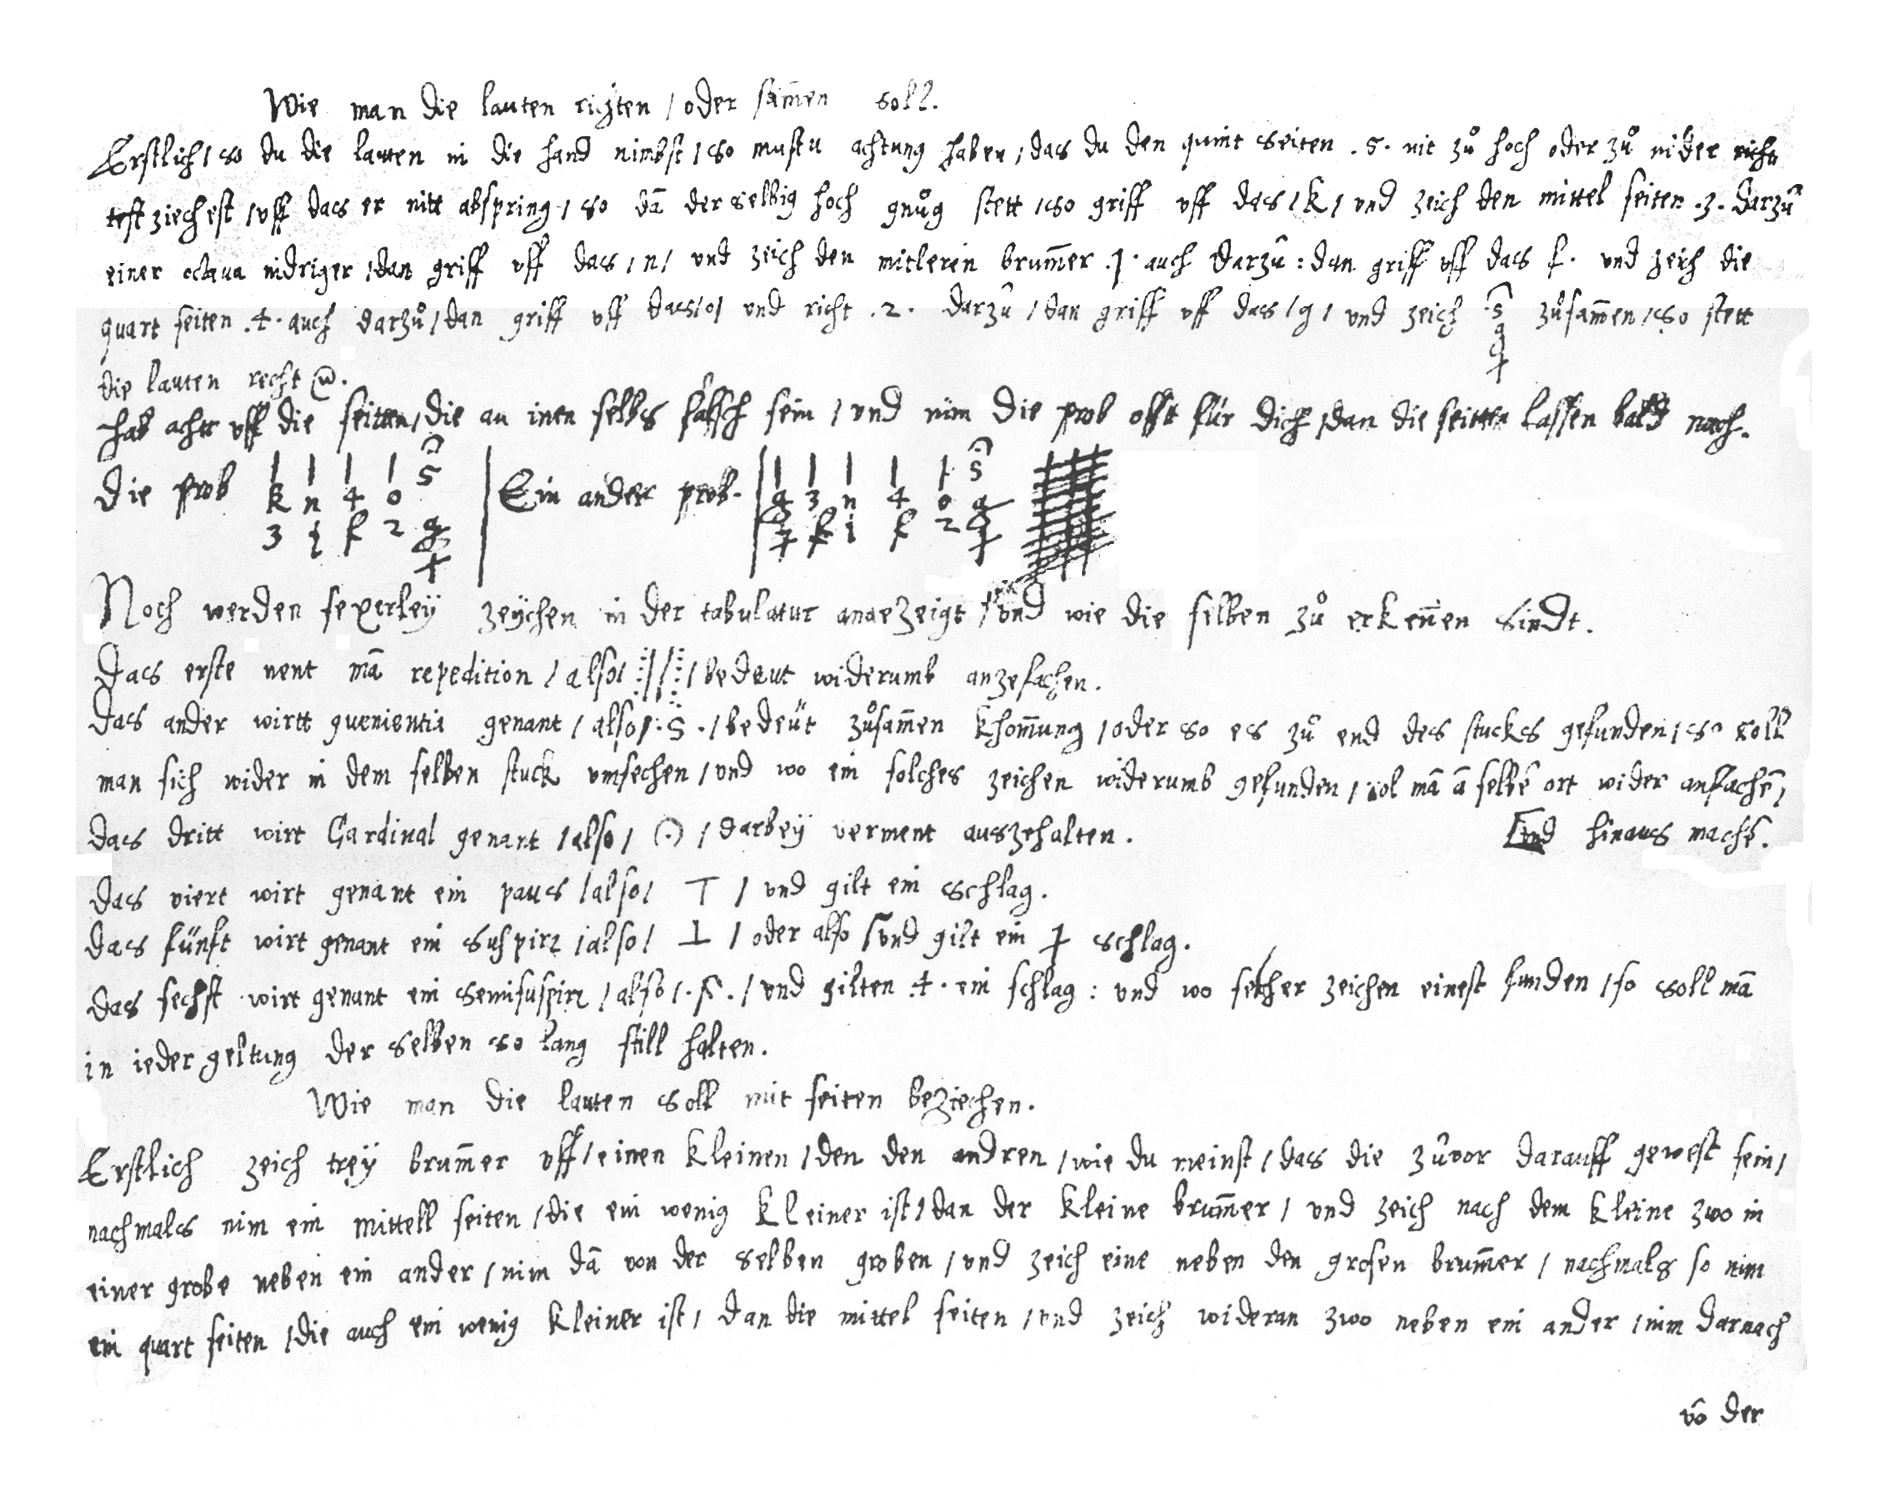 Wie man die lauten richten / oder samen soll.
Erstlich / so du die lauten in die hand nimbst / so mustu achtung haben / das du den quint seiten . 5 . nit zů hoch oder zů nider
ziechest / uff das er nitt abspring / so dā der selbig hoch gnůg stett / so griff uff das / k / und zeich den mittel seiten . 3 . darzů
einer octava nidriger / dan griff uff das / n / und zeich den mitleren brum̄er . 1 . auch darzů : dan griff uff das f . und zeich die
quart seiten . 4 . auch darzů / dan griff uff das / o / und richt . 2 . darzů / dan griff uff das / g / und zeich 5 g zůsam̄en / so stett
die lauten recht
hab acht uff die seitten / die an inen selbs falsch sein / und nim die prob offt für dich / dan die seitten lassen bald nach.
die prob k n 4 o 5 Ein ander prob. g 3 n 4 o 5
3 1 f 2 g f 1 f 2 g
Noch werden sexerley zeÿchen in der tabulatur angezeigt / und wie die selben zů erken̄en sindt.
Das erste nent mā repedition / also / :||: / bedeut widerumb anzefachen.
Das ander wirtt quenientia genant / also / . S . / bedeüt zůsam̄en khom̄ung / oder so es zů end des stucks gefunden / so soll
man sich wider in dem selben stuck umsechen / und wo ein solches zeichen widerumb gefunden / sol mā ā selbē ort wider anfachē /
das dritt wirt Cardinal genant / also / 𝄐 / darbeÿ verment auszehalten. [und hinaus machē.
das viert wirt genant ein paus / also / ⊤ / und gilt ein schlag.
das fünft wirt genant ein suspirz / also / ⊥ / oder also / und gilt ein schlag.
das sechst wirt genant ein semisuspirz / also / / und gilten . 4 . ein schlag : und wo solcher zeichen einest funden / so soll mā
in ieder geltung der selben so lang still halten.
Wie man die lauten soll mit seiten beziechen.
Erstlich zeich treÿ brum̄er uff / einen kleinen / den den andren / wie du meinst / das die zůvor darauff gewest sein /
nachmals nim ein mittell seiten / die ein wenig kleiner ist / dan der kleine brum̄er / und zeich nach dem kleine zwo in
einer grobe neben ein ander / nim dā von der selben groben / und zeich eine neben den grosen brum̄er / nachmals so nim
ein quart seiten / die auch ein wenig kleiner ist / dan die mittel seiten / und zeich wideran zwo neben ein ander / nim darnach
vō der